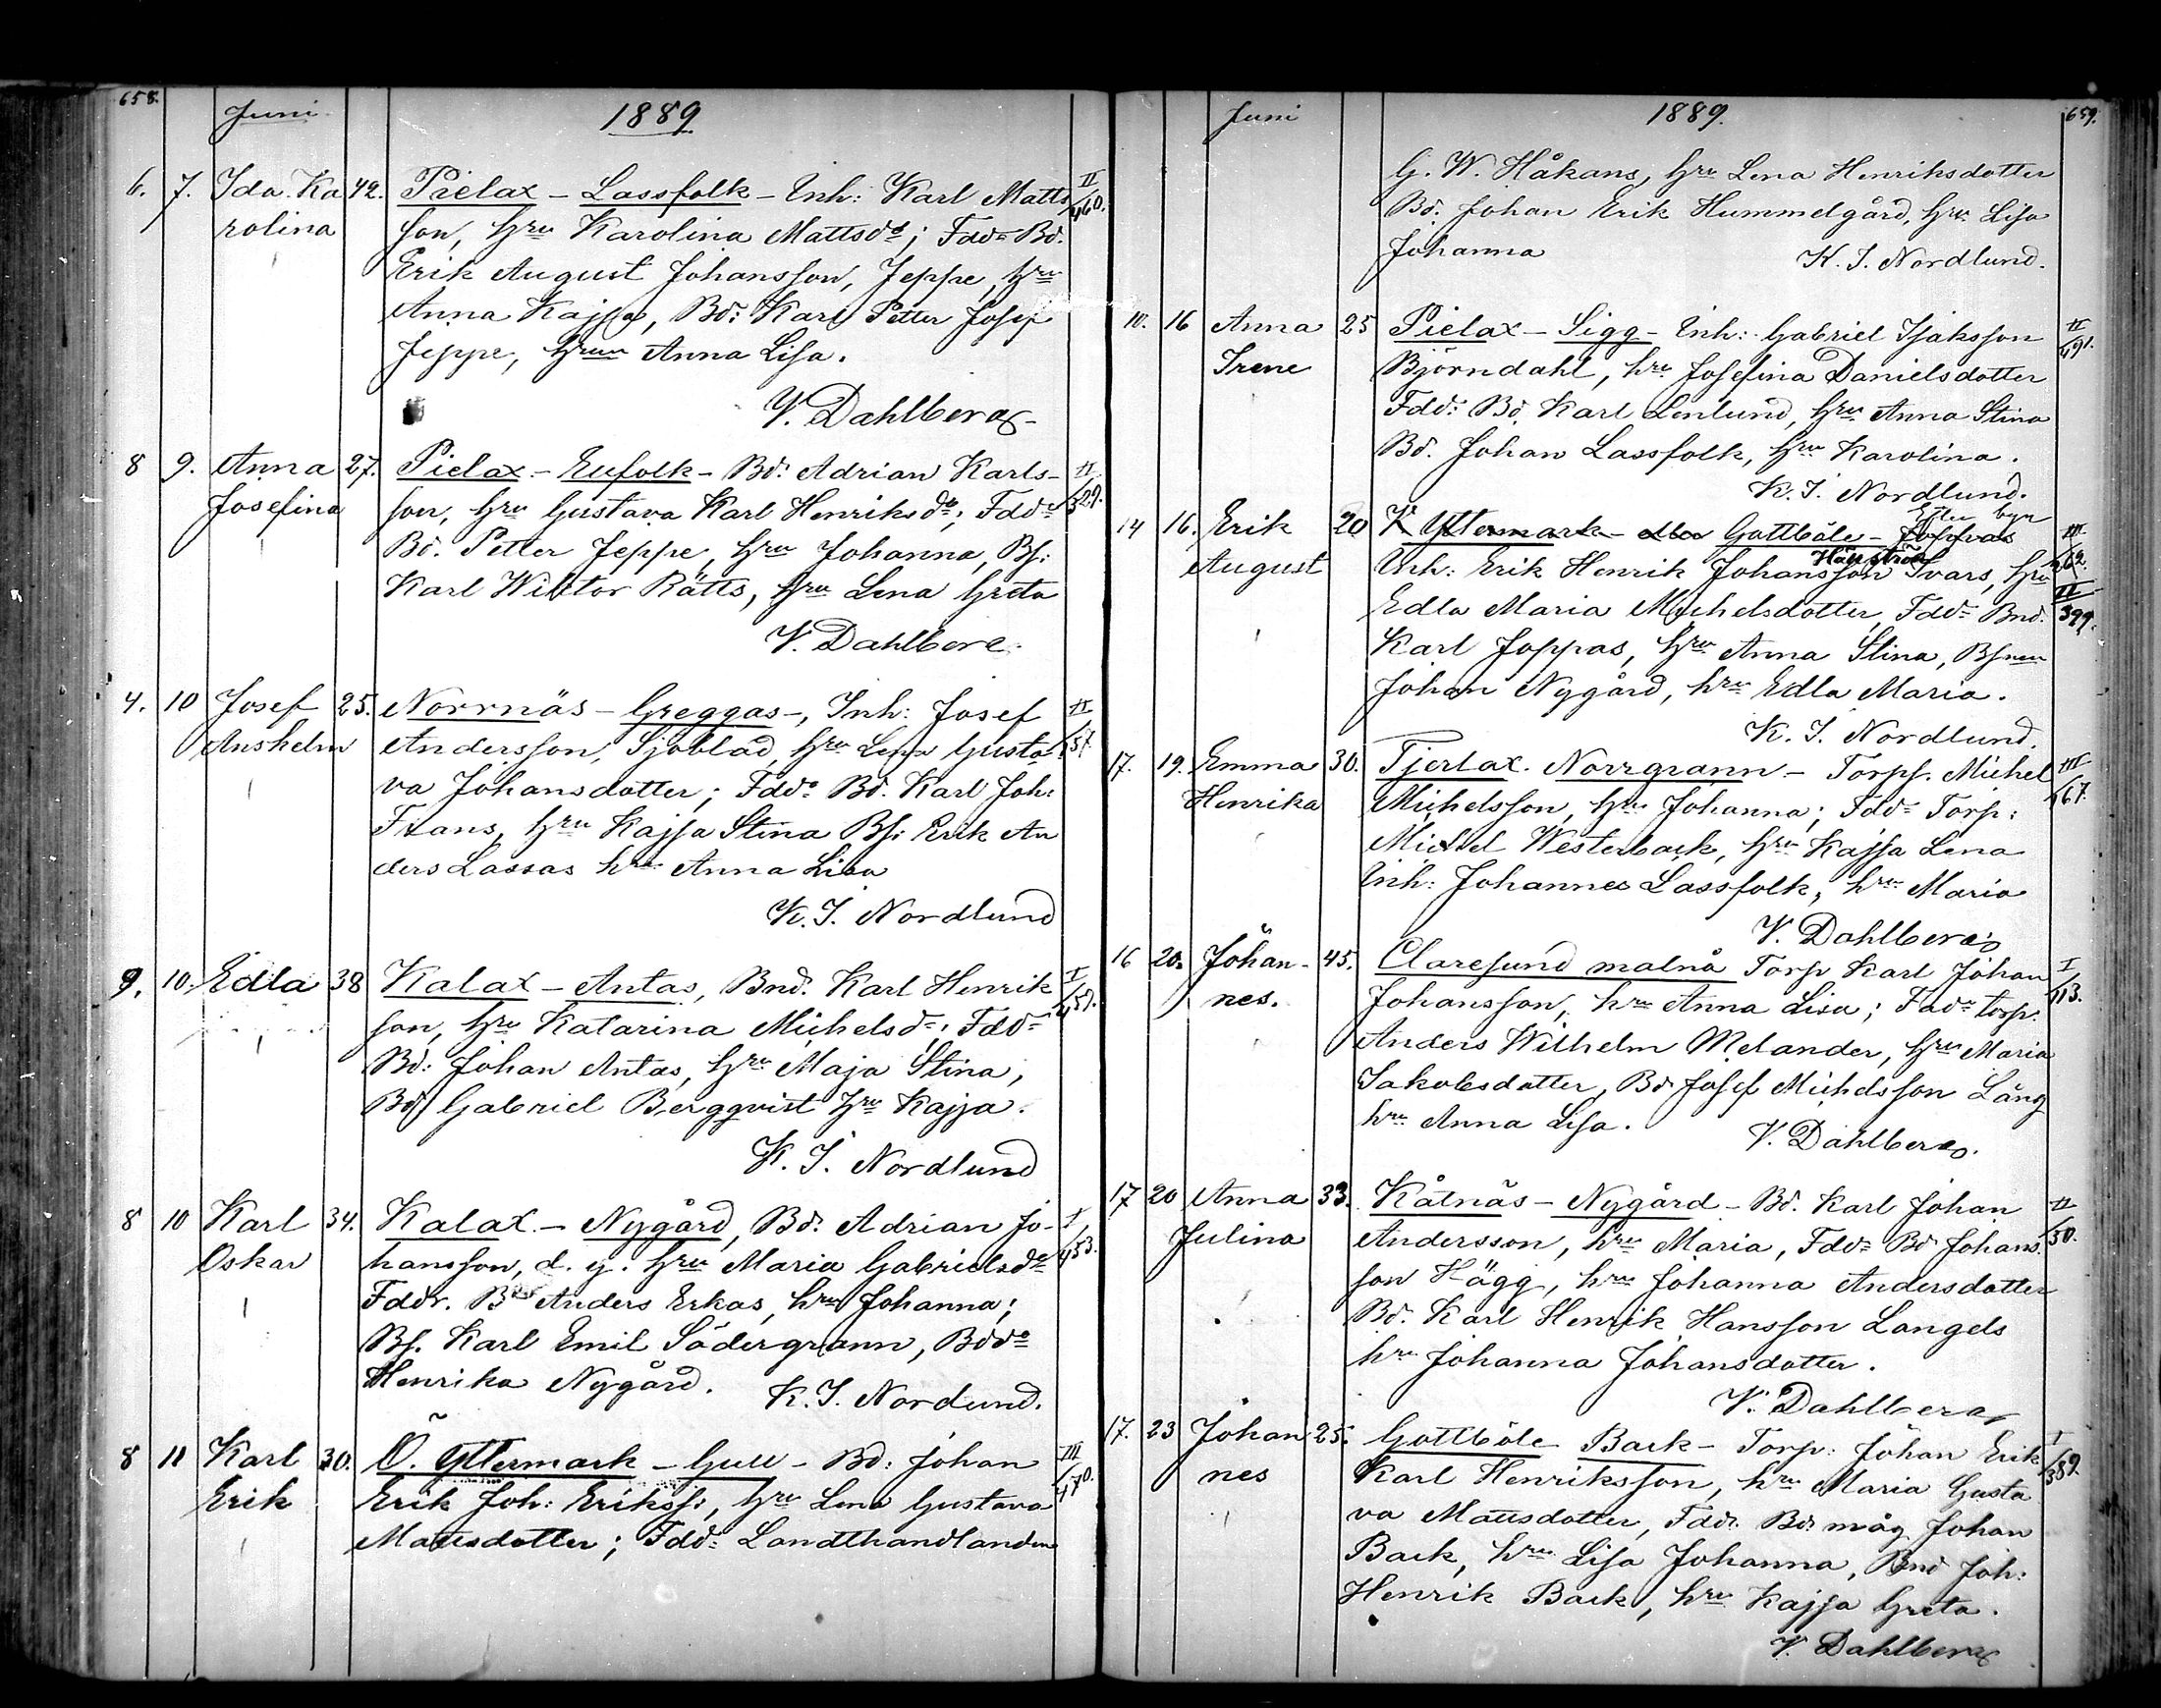 658.
Juni
1889
6. 7. Ida Ka 42. Pielax - Lassfolk - Inh: Karl Matts II
rolina son, hru Karolina Mattsdr; Fddr Bd. 460.
Erik August Johansson, Jeppe, hru
Anna Kajsa, Bd: Karl Petter Josef
Jeppe, hrun Anna Lisa.
V. Dahlberg
8 9. Anna 27. Pielax - Eufolk - Bd: Adrian Karls- II
Josefina son, hru Gustava Karl Henriksdr; Fddr 329.
Bd. Petter Jeppe, hru Johanna, Bs:
Karl Wiktor Rätts, hru Lena Greta
V. Dahlberg
4. 10 Josef 25. Norrnäs - Greggas -, Inh: Josef II
Anshelm Andersson, Sjöblad, hru Lena Gusta- 157.
va Johansdotter; Fddr Bd. Karl Joh:
Frans, hru Kajsa Stina Bs: Erik An
ders Lassas hru Anna Lisa
K. J. Nordlund
9. 10. Edla 38 Kalax - Antas, Bnd. Karl Henrik I
son, hru Katarina Michelsdr; Fddr 451.
Bd: Johan Antas, hru Maja Stina,
Bd Gabriel Bergqvist hru Kajsa.
K. J. Nordlund
8 10 Karl 34. Kalax - Nygård, Bd. Adrian Jo- I
Oskar hansson, d. y. hru Maria Gabrielsdr 453.
Fddr. Bd Anders Erkas, hru Johanna;
Bs. Karl Emil Södergrann, Bddr
Henrika Nygård. K. J. Nordlund.
8 11 Karl 30. Ö. Yttermark - Gull - Bd: Johan III
Erik Erik Joh: Erikss:, hru Lena Gustava 470.
Mattsdotter; Fdd: Landthandlanden
Juni
1889.
659.
G. W. Håkans, hru Lena Henriksdotter
Bd. Johan Erik Hummelgård, hru Lisa
Johanna K. J. Nordlund.
10. 16 Anna 25 Pielax - Sigg - Inh: Gabriel Isaksson II
Irene Björndahl, hru Josefina Danielsdotter 491.
Fdd: Bd. Karl Lenlund, hru Anna Stina
Bd. Johan Lassfolk, hru Karolina.
K. J. Nordlund.
14 16. Erik 20 Yttermark - Gottböle - Joppas III
August Inh: Erik Henrik Johansson Ivars, hru 262.
Edla Maria Michelsdotter, Fddr Bnd. II 399.
Karl Joppas, hru Anna Stina, Bsnen
Johan Nygård, hru Edla Maria.
K. J. Nordlund.
17. 19. Emma 30. Tjerlax. Norrgrann - Torps. Michel III
Henrika Michelsson, hru Johanna; Fddr Torp: 167.
Michel Westerback, hru Kajsa Lena
Inh: Johannes Lassfolk, hru Maria
V. Dahlberg
16 20. Johan- 45. Claresund malnå Torp Karl Johan I
nes. Johansson, hru Anna Lisa; Fddr torp. 113.
Anders Wilhelm Melander, hru Maria
Jakobsdotter, Bd. Josef Michelsson Lång
hru Anna Lisa. V. Dahlberg.
17 20 Anna 33. Kåtnäs - Nygård - Bd. Karl Johan II
Julina Andersson, hru Maria, Fddr Bd Johans 50.
son Hägg, hru Johanna Andersdotter
Bd. Karl Henrik Hansson Langels
hru Johanna Johansdotter.
V. Dahlberg
17. 23 Johan 25. Gottböle Back - Torp: Johan Erik I
nes Karl Henriksson, hru Maria Gusta 389.
va Mattsdotter, Fddr. Bd: måg Johan
Back, hru Lisa Johanna, Bnd Joh:
Henrik Back, hru Kajsa Greta.
V. Dahlberg